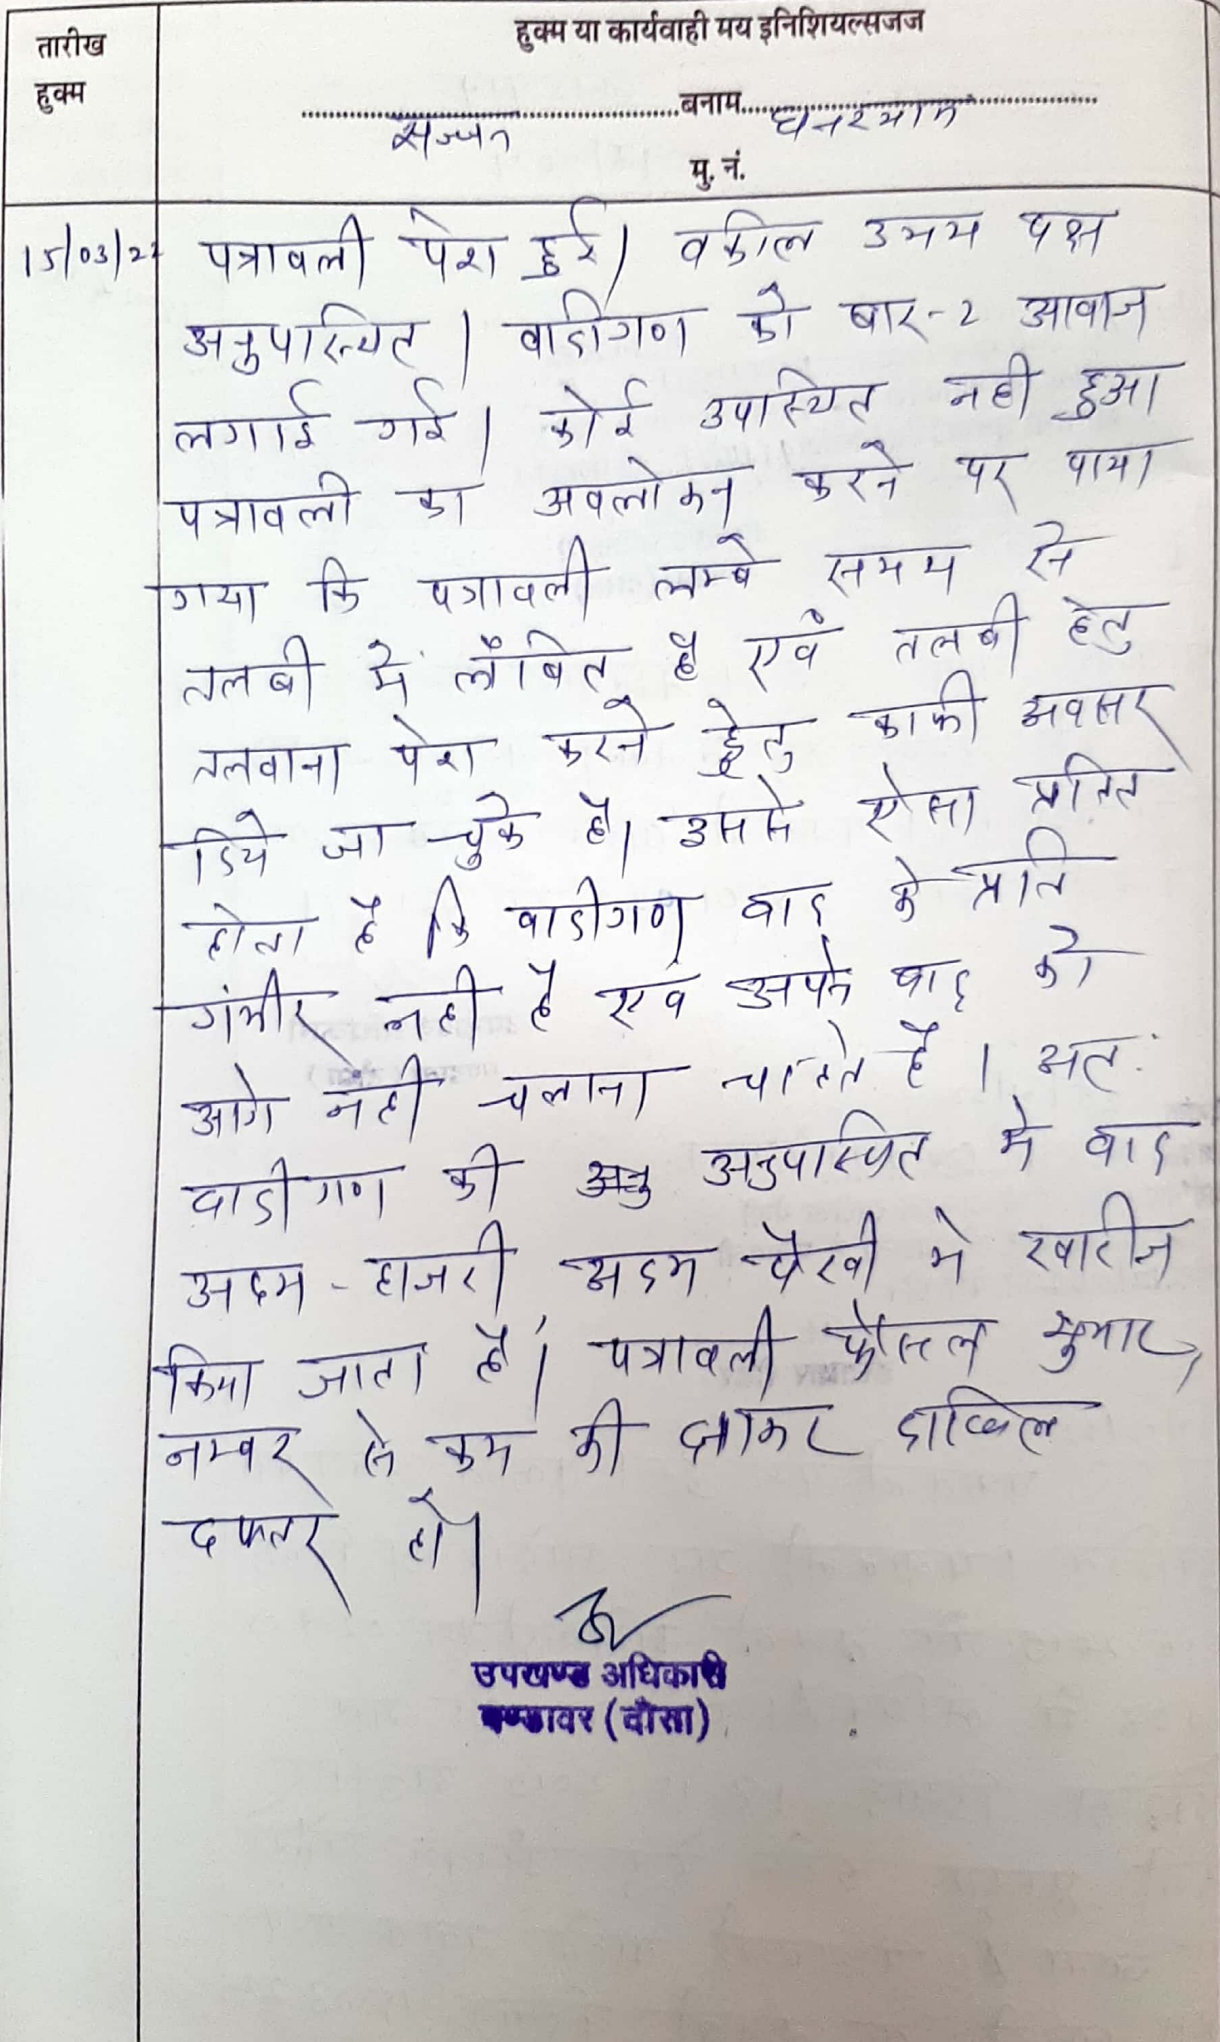 तारीख
हुक्म
हुक्म या कार्यवाही मय इनिशियल्सजज
सज्जन बनाम घनश्याम
मु. नं.
15/03/22 पत्रावली पेश हुई। वकील उभय पक्ष
अनुपस्थित। वादीगण को बार-2 आवाज
लगाई गई। कोई उपस्थित नही हुआ
पत्रावली का अवलोकन करने पर पाया
गया कि पत्रावली लम्बे समय से
तलबी में लंबित है एवं तलबी हेतु
तलवाना पेश करने हेतु काफी अवसर
दिये जा चुके है। उससे ऐसा प्रतित
होता है कि वादीगण वाद के प्रति
गंभीर नही है एवं अपने वाद को
आगे नही चलाना चाहते है। अतः
वादीगण की अनुपस्थित मे वाद
अदम-हाजरी अदम पैरवी मे खारीज
किया जाता है। पत्रावली फैसल शुमार,
नम्बर से कम की जाकर दाखिल
दफ्तर हो।
उपखण्ड अधिकारी
मण्डावर (दौसा)